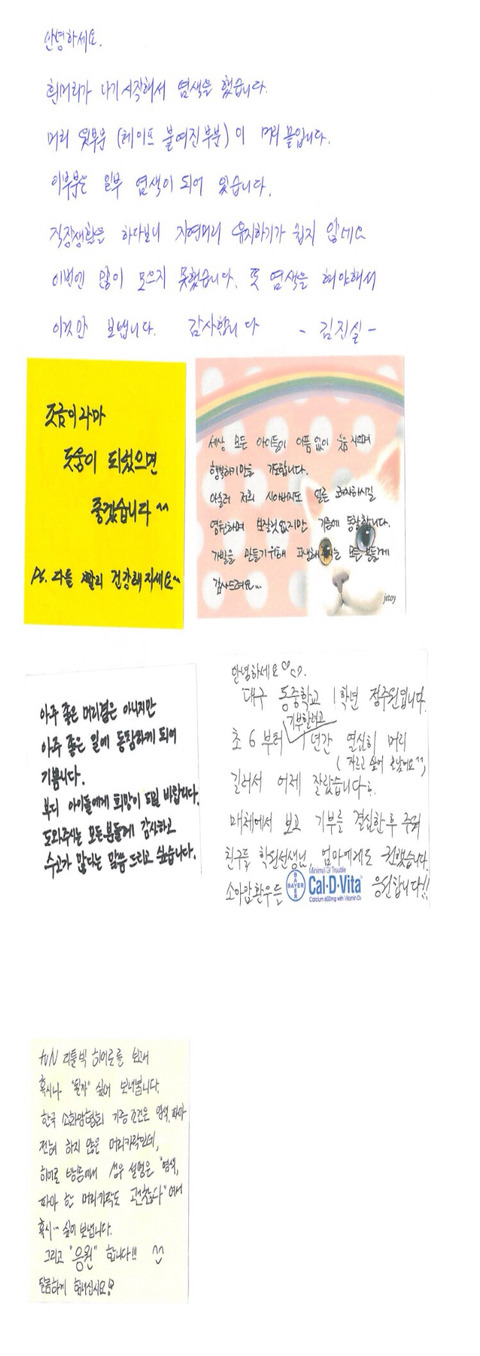 안녕하세요.
흰머리가 나기 시작해서 염색을 했습니다.
머리 윗부분 (테이프 붙여진 부분) 이 머리 끝입니다.
이부분은 일부 염색이 되어 있습니다.
직장생활을 하다보니 자연머리 유지하기가 쉽지 않네요
이번엔 많이 모으지 못했습니다. 또 염색을 해야해서
이것만 보냅니다. 감사합니다 - 김진실 -
조금이라마
도움이 되었으면
좋겠습니다 ^^
P.S. 다들 빨리 건강해지세요~
세상 모든 아이들이 아픔 없이
행복하기만을 기도합니다.
아울러 저희 시아버지도 암을
보잘것 없지만 기증에 동참합니다.
가발을 만들기 위해 모든 분들께
감사드려요...
jetoy
아주 좋은 머리결은 아니지만
아주 좋은 일에 동참하게 되어
기쁩니다.
부디 아이들에게 희망이 되길 바랍니다.
도와주시는 모든분들께 감사하고
수고가 많다는 말씀 드리고 싶습니다.
안녕하세요
대구 동중학교 1학년 정수원입니다.
기부할려고
초 6 부터 1년간 열심히 머리
(자르고 싶어 혼났어요^^)
길러서 어제 잘랐습니다.
매체에서 보고 기부를 결심한 후 주위
친구들, 학원선생님, 엄마에게도 권했습니다.
소아암 환우들 응원합니다!!
BAYER
Minimal GI Trouble
Cal-D-Vita
Calcium 600mg with Vitamin D3
tvN 리틀빅 히어로를 보고
혹시나 "될까" 싶어 보내봅니다
한국 소아암협회의 기증 조건은 염색, 파마
전혀 하지 않은 머리카락인데,
히어로 방송에서 설명은 "염색,
파마 한 머리카락도 괜찮다" 여서
혹시~ 싶어 보냅니다.
그리고 "응원" 합니다!!! ^^
달콤하게 힘내십시요!